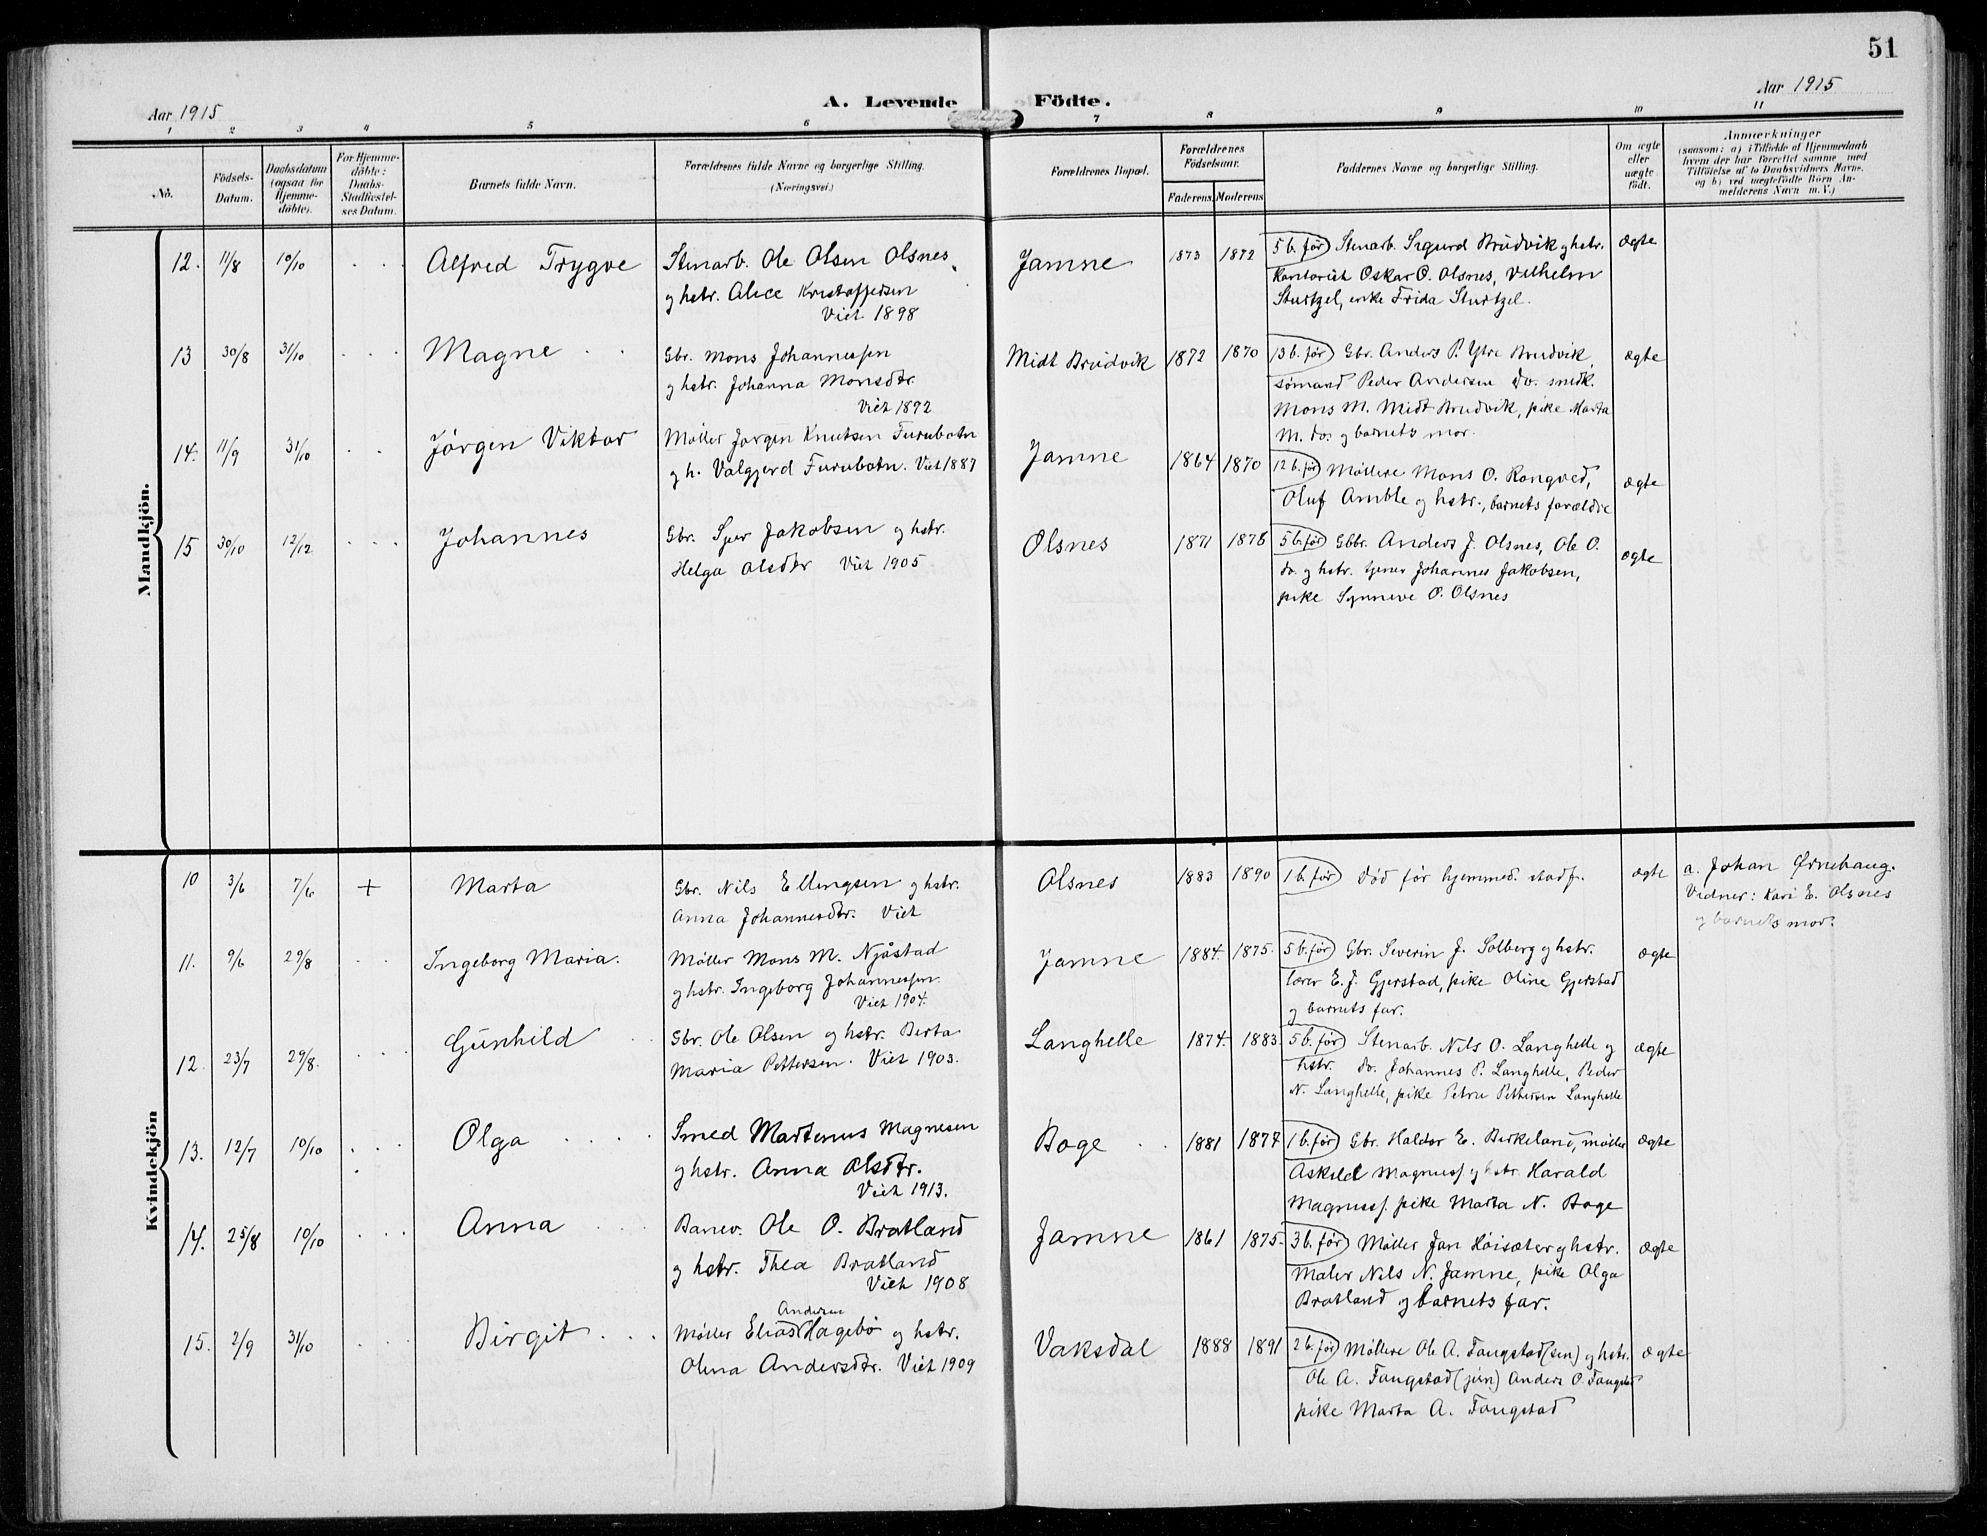 51
Aar 1915
A. Levende Födte.
Aar 1915
1 2 3 4 5 6 7 8 9 10 11
No.
Födsels-
Datum.
Daabsdatum
(ogsaa for
Hjemme-
döbte).
For Hjemme-
döbte:
Daabs-
Stadfæstel-
ses Datum.
Barnets fulde Navn.
Forældrenes fulde Navne og borgerlige Stilling.
(Næringsvei.)
Forældrenes Bopæl.
Forældrenes
Födselsaar.
Faderens. Moderens
Faddernes Navne og borgerlige Stilling.
Om ægte
eller
uægte
födt.
Anmærkninger
(saasom: a) i Tilfælde af Hjemmedaab
hvem der har forrettet samme, med
Tilföielse af to Daabsvidners Navne,
og b) ved uægtefödte Börn An-
melderens Navn m. V.)
Mandkjön.
12. 11/8 10/10 Alfred Trygve
Stenarb. Ole Olsen Olsnes
og hstr. Alice Kristoffersen
Viet 1898
Jamne 1873 1872
5 b. før Stenarb. Sigurd Brudvik og hstr.
Kontorist Oskar O. Olsnes, Vilhelm
Sturtzel, enke Frida Sturtzel.
ægte
13 30/8 31/10 Magne
Gbr. Mons Johannessen
og hstr. Johanna Monsdtr.
Viet 1892
Midt Brudvik 1872 1870
13 b. før Gbr. Anders P. Ytre Brudvik,
sømand Peder Andersen do. snedk.
Mons M. Midt Brudvik, pike Marta
M. do. og barnets mor.
ægte
14. 11/9 31/10 Jørgen Viktor
Møller Jørgen Knutsen Furubotn
og h. Valgjerd Furubotn. Viet 1887
Jamne 1864 1870
12 b. før Møllere Mons O. Rongved,
Oluf Amble og hstr., barnets forældre
ægte
15 30/10 12/12 Johannes
Gbr. Sjur Jakobsen og hstr.
Helga Olsdtr Viet 1905
Olsnes 1871 1878
5 b. før Gbbr. Anders J. Olsnes, Ole O.
do. og hstr. tjener Johannes Jakobsen,
pike Synneve O. Olsnes
ægte
Kvindekjön
10 3/6 7/6 + Marta
Gbr. Nils Ellingsen og hstr.
Anna Johannesdtr. Viet
Olsnes 1883 1890
1 b. før Død før hjemmed. stadf.
ægte
a. Johan Ørnehaug.
Vidner: Kari E. Olsnes
og barnets mor.
11. 9/6 29/8 Ingeborg Maria.
Møller Mons M. Njåstad
og hstr. Ingeborg Johannessen.
Viet 1904.
Jamne 1884. 1875.
5 b. før Gbr. Severin J. Solberg og hstr.
lærer E. J. Gjerstad, pike Oline Gjerstad
og barnets far.
ægte
12. 23/7 29/8. Gunhild
Gbr. Ole Olsen og hstr. Berta
Maria Pettersen. Viet 1903.
Langhelle 1874. 1883.
5 b. før Stenarb. Nils O. Langhelle og
hstr. do. Johannes P. Langhelle, Peder
N. Langhelle, pike Petra Pettersen Langhelle
ægte
13. 12/7 10/10 Olga
Smed Martenus Magnesen
og hstr. Anna Olsdtr.
Viet 1913.
Boge 1881 1877
1 b. før Gbr. Haldor E. Birkeland, møller
Askild Magnuss. og hstr. Harald
Magnuss. pike Marta N. Boge
ægte
14. 25/8 10/10 Anna
Banev. Ole O. Bratland
og hstr. Thea Bratland
Viet 1908
Jamne 1861 1875.
3 b. før Møller Jan Høisæter og hstr.
Maler Nils N. Jamne, pike Olga
Bratland og barnets far.
ægte
15. 2/9 31/10 Birgit
Andersen
Møller Elias Hagebø og hstr.
Olina Andersdtr. Viet 1909
Vaksdal 1888 1891
2 b. før Møllere Ole A. Fangstad (sen) og hstr.
Ole A. Fangstad (jun) Anders O. Fangstad
pike Marta A. Fangstad
ægte